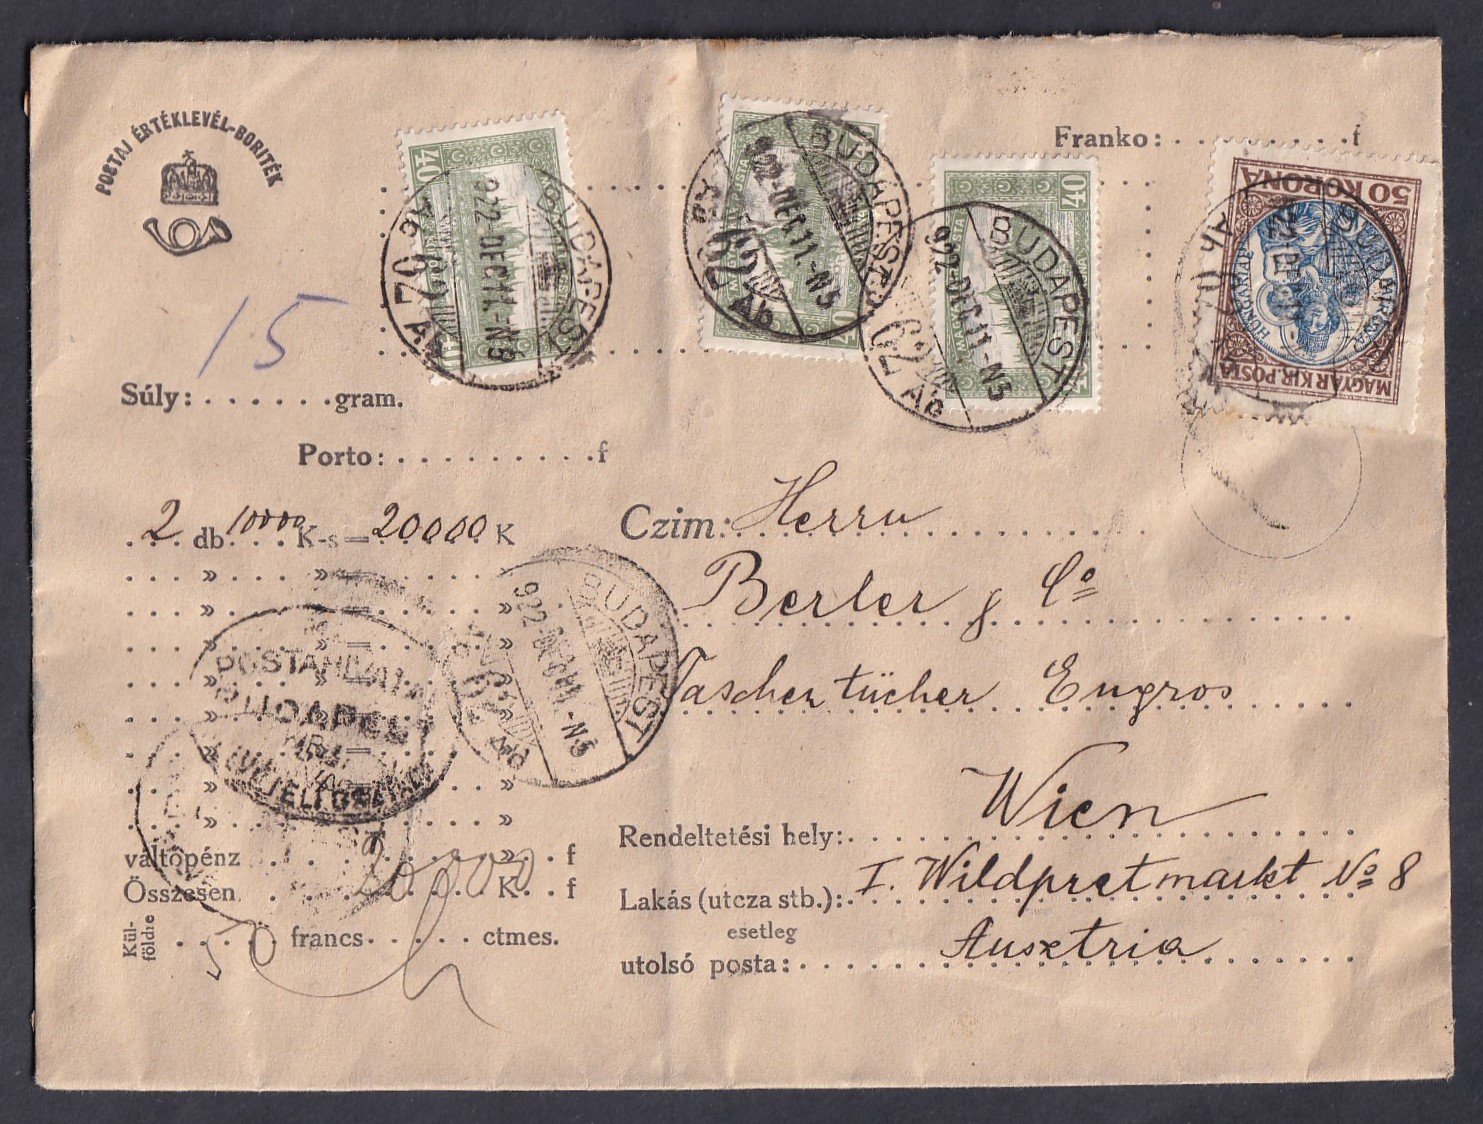 POSTAI ÉRTÉKLEVÉL-BORITÉK
Franko: f
40
40
40
40
50 KORONA
MAGYAR KIR. POSTA
BUDAPEST
922-DEC 11.-N5
62
BUDAPEST
922-DEC 11.-N5
62
BUDAPEST
922-DEC 11.-N5
62
15
Súly: gram.
Porto: f
2 db 10000 K-s= 20000 K
Czim: Herrn
Berler & Co
Taschentücher Engros
BUDAPEST
922-DEC 11.-N5
62
BUDAPEST
Rendeltetési hely: Wien
váltópénz f
Összesen 20000 K f
Lakás (utcza stb.): I. Wildpretmarkt No 8
esetleg
utolsó posta: Ausztria
Kül-
földre 50 francs ctmes.